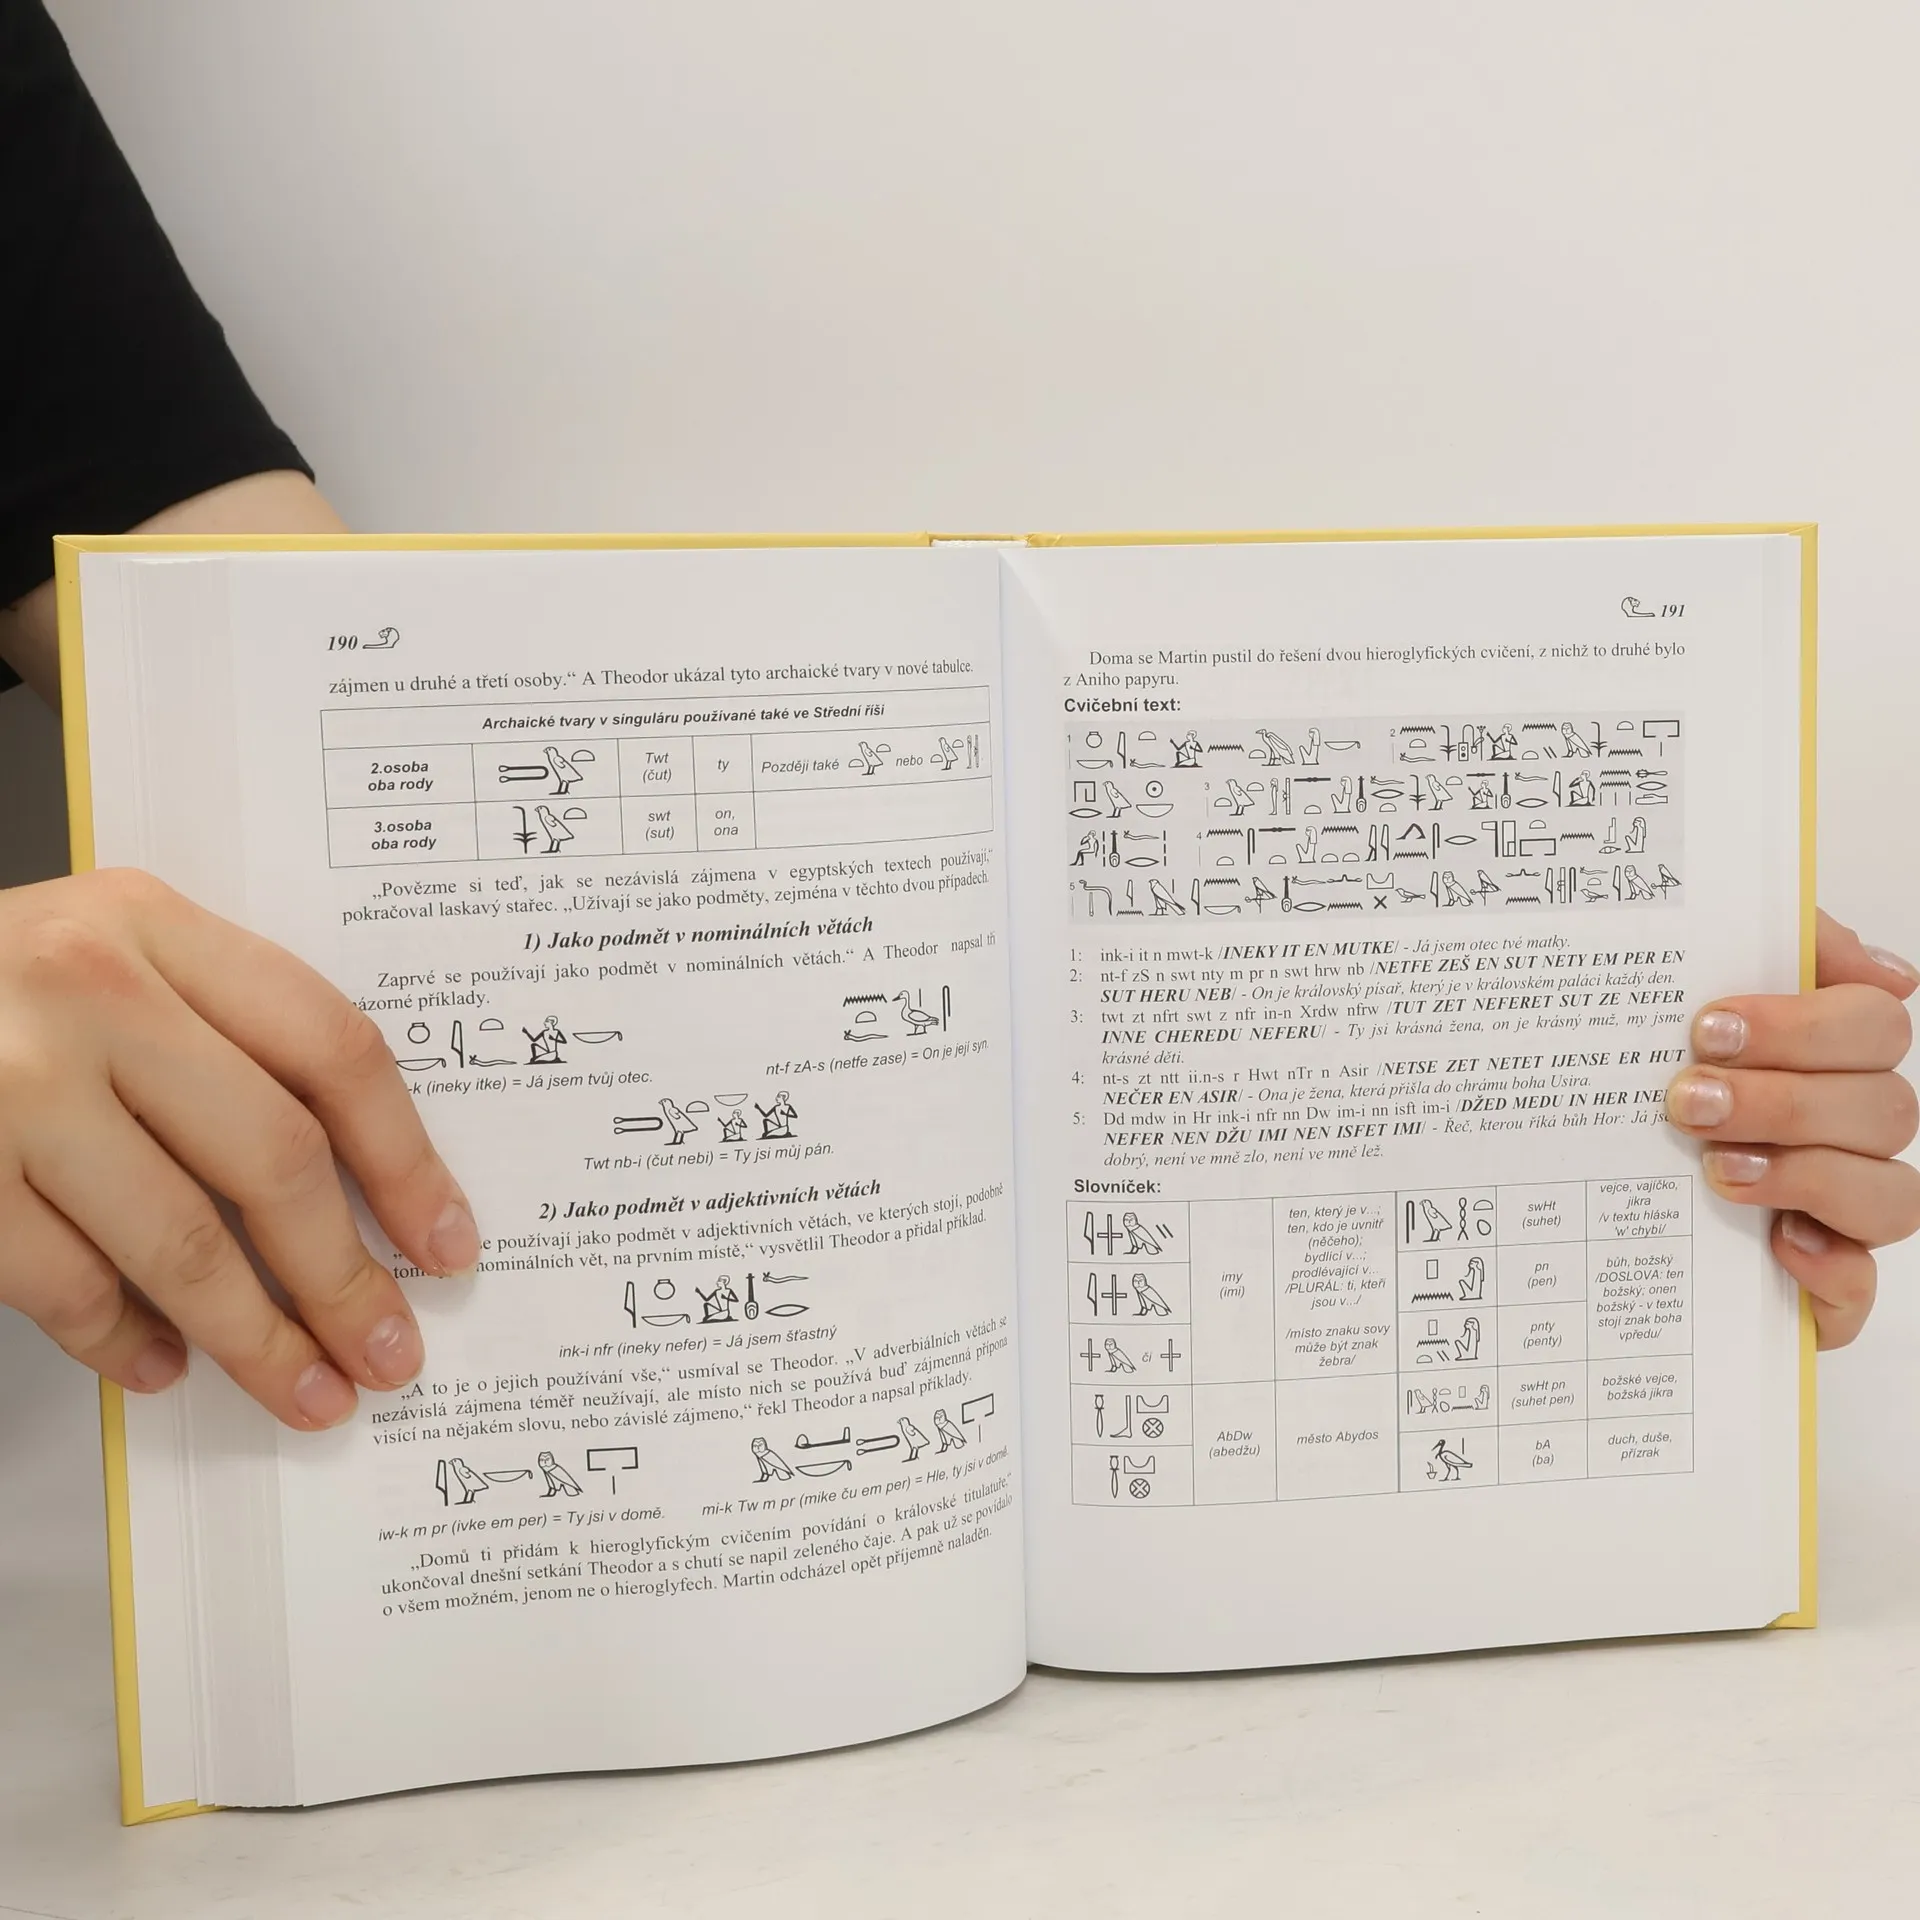 190
zájmen u druhé a třetí osoby.“ A Theodor ukázal tyto archaické tvary v nové tabulce.
Archaické tvary v singuláru používané také ve Střední říši
2.osoba oba rody
Twt (čut)
ty
Později také
nebo
3.osoba oba rody
swt (sut)
on, ona
„Povězme si teď, jak se nezávislá zájmena v egyptských textech používají,“
pokračoval laskavý stařec. „Užívají se jako podměty, zejména v těchto dvou případech.
1) Jako podmět v nominálních větách
Zaprvé se používají jako podmět v nominálních větách.“ A Theodor napsal tři
názorné příklady.
-k (ineky itke) = Já jsem tvůj otec.
nt-f zA-s (netfe zase) = On je její syn.
Twt nb-i (čut nebi) = Ty jsi můj pán.
2) Jako podmět v adjektivních větách
se používají jako podmět v adjektivních větách, ve kterých stojí, podobně
nominálních vět, na prvním místě,“ vysvětlil Theodor a přidal příklad.
ink-i nfr (ineky nefer) = Já jsem šťastný
„A to je o jejich používání vše,“ usmíval se Theodor. „V adverbiálních větách se
nezávislá zájmena téměř neužívají, ale místo nich se používá buď zájmenná přípona
visící na nějakém slovu, nebo závislé zájmeno,“ řekl Theodor a napsal příklady.
iw-k m pr (ivke em per) = Ty jsi v domě.
mi-k Tw m pr (mike ču em per) = Hle, ty jsi v domě.
„Domů ti přidám k hieroglyfickým cvičením povídání o královské titulatuře.“
ukončoval dnešní setkání Theodor a s chutí se napil zeleného čaje. A pak už se povídalo
o všem možném, jenom ne o hieroglyfech. Martin odcházel opět příjemně naladěn.
191
Doma se Martin pustil do řešení dvou hieroglyfických cvičení, z nichž to druhé bylo
z Aniho papyru.
Cvičební text:
1 2
3
4
5
1: ink-i it n mwt-k /INEKY IT EN MUTKE/ - Já jsem otec tvé matky.
2: nt-f zS n swt nty m pr n swt hrw nb /NETFE ZEŠ EN SUT NETY EM PER EN
SUT HERU NEB/ - On je královský písař, který je v královském paláci každý den.
3: twt zt nfrt swt z nfr in-n Xrdw nfrw /TUT ZET NEFERET SUT ZE NEFER
INNE CHEREDU NEFERU/ - Ty jsi krásná žena, on je krásný muž, my jsme
krásné děti.
4: nt-s zt ntt ii.n-s r Hwt nTr n Asir /NETSE ZET NETET IJENSE ER HUT
NEČER EN ASIR/ - Ona je žena, která přišla do chrámu boha Usira.
5: Dd mdw in Hr ink-i nfr nn Dw im-i nn isft im-i /DŽED MEDU IN HER
NEFER NEN DŽU IMI NEN ISFET IMI/ - Řeč, kterou říká bůh Hor: Já
dobrý, není ve mně zlo, není ve mně lež.
Slovníček:
imy (imi)
ten, který je v...;
ten, kdo je uvnitř
(něčeho);
bydlící v...;
prodlévající v...
/PLURÁL: ti, kteří
jsou v.../
/místo znaku sovy
může být znak
žebra/
či
AbDw (abedžu)
město Abydos
swHt (suhet)
vejce, vajíčko,
jikra
/v textu hláska
'w' chybí/
pn (pen)
pnty (penty)
bůh, božský
/DOSLOVA: ten
božský; onen
božský - v textu
stojí znak boha
vpředu/
swHt pn (suhet pen)
božské vejce,
božská jikra
bA (ba)
duch, duše,
přízrak